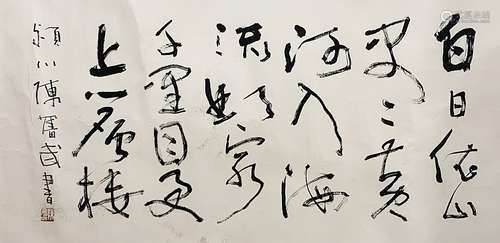 白日依山
尽黄
河入海
流欲窮
千里目更
上一層樓
潁川陳奮武書